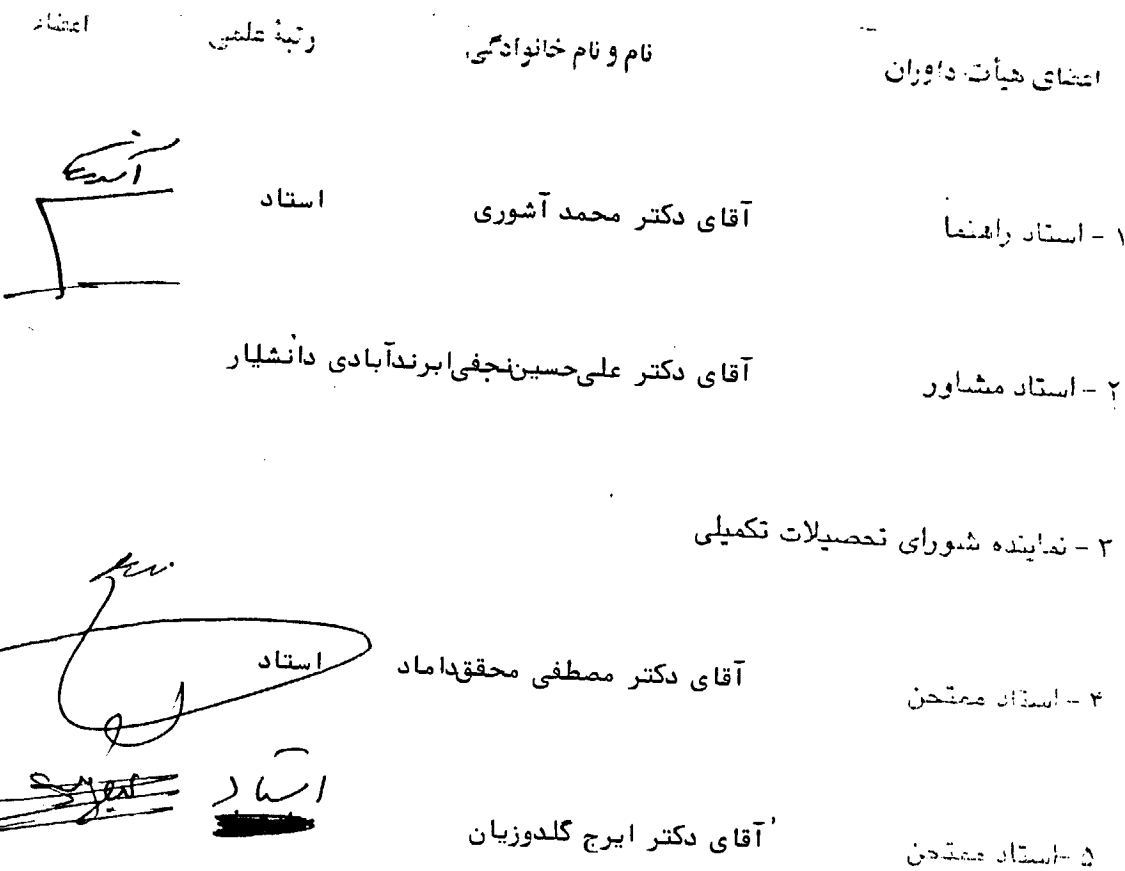 اعضای هیأت داوران نام و نام خانوادگی رتبهٔ علمی امضاء
۱ - استاد راهنما آقای دکتر محمد آشوری استاد
۲ - استاد مشاور آقای دکتر علی‌حسین‌نجفی‌ابرندآبادی دانشیار
۳ - نماینده شورای تحصیلات تکمیلی
۴ - استاد ممتحن آقای دکتر مصطفی محقق‌داماد استاد
۵ - استاد ممتحن آقای دکتر ایرج گلدوزیان استاد